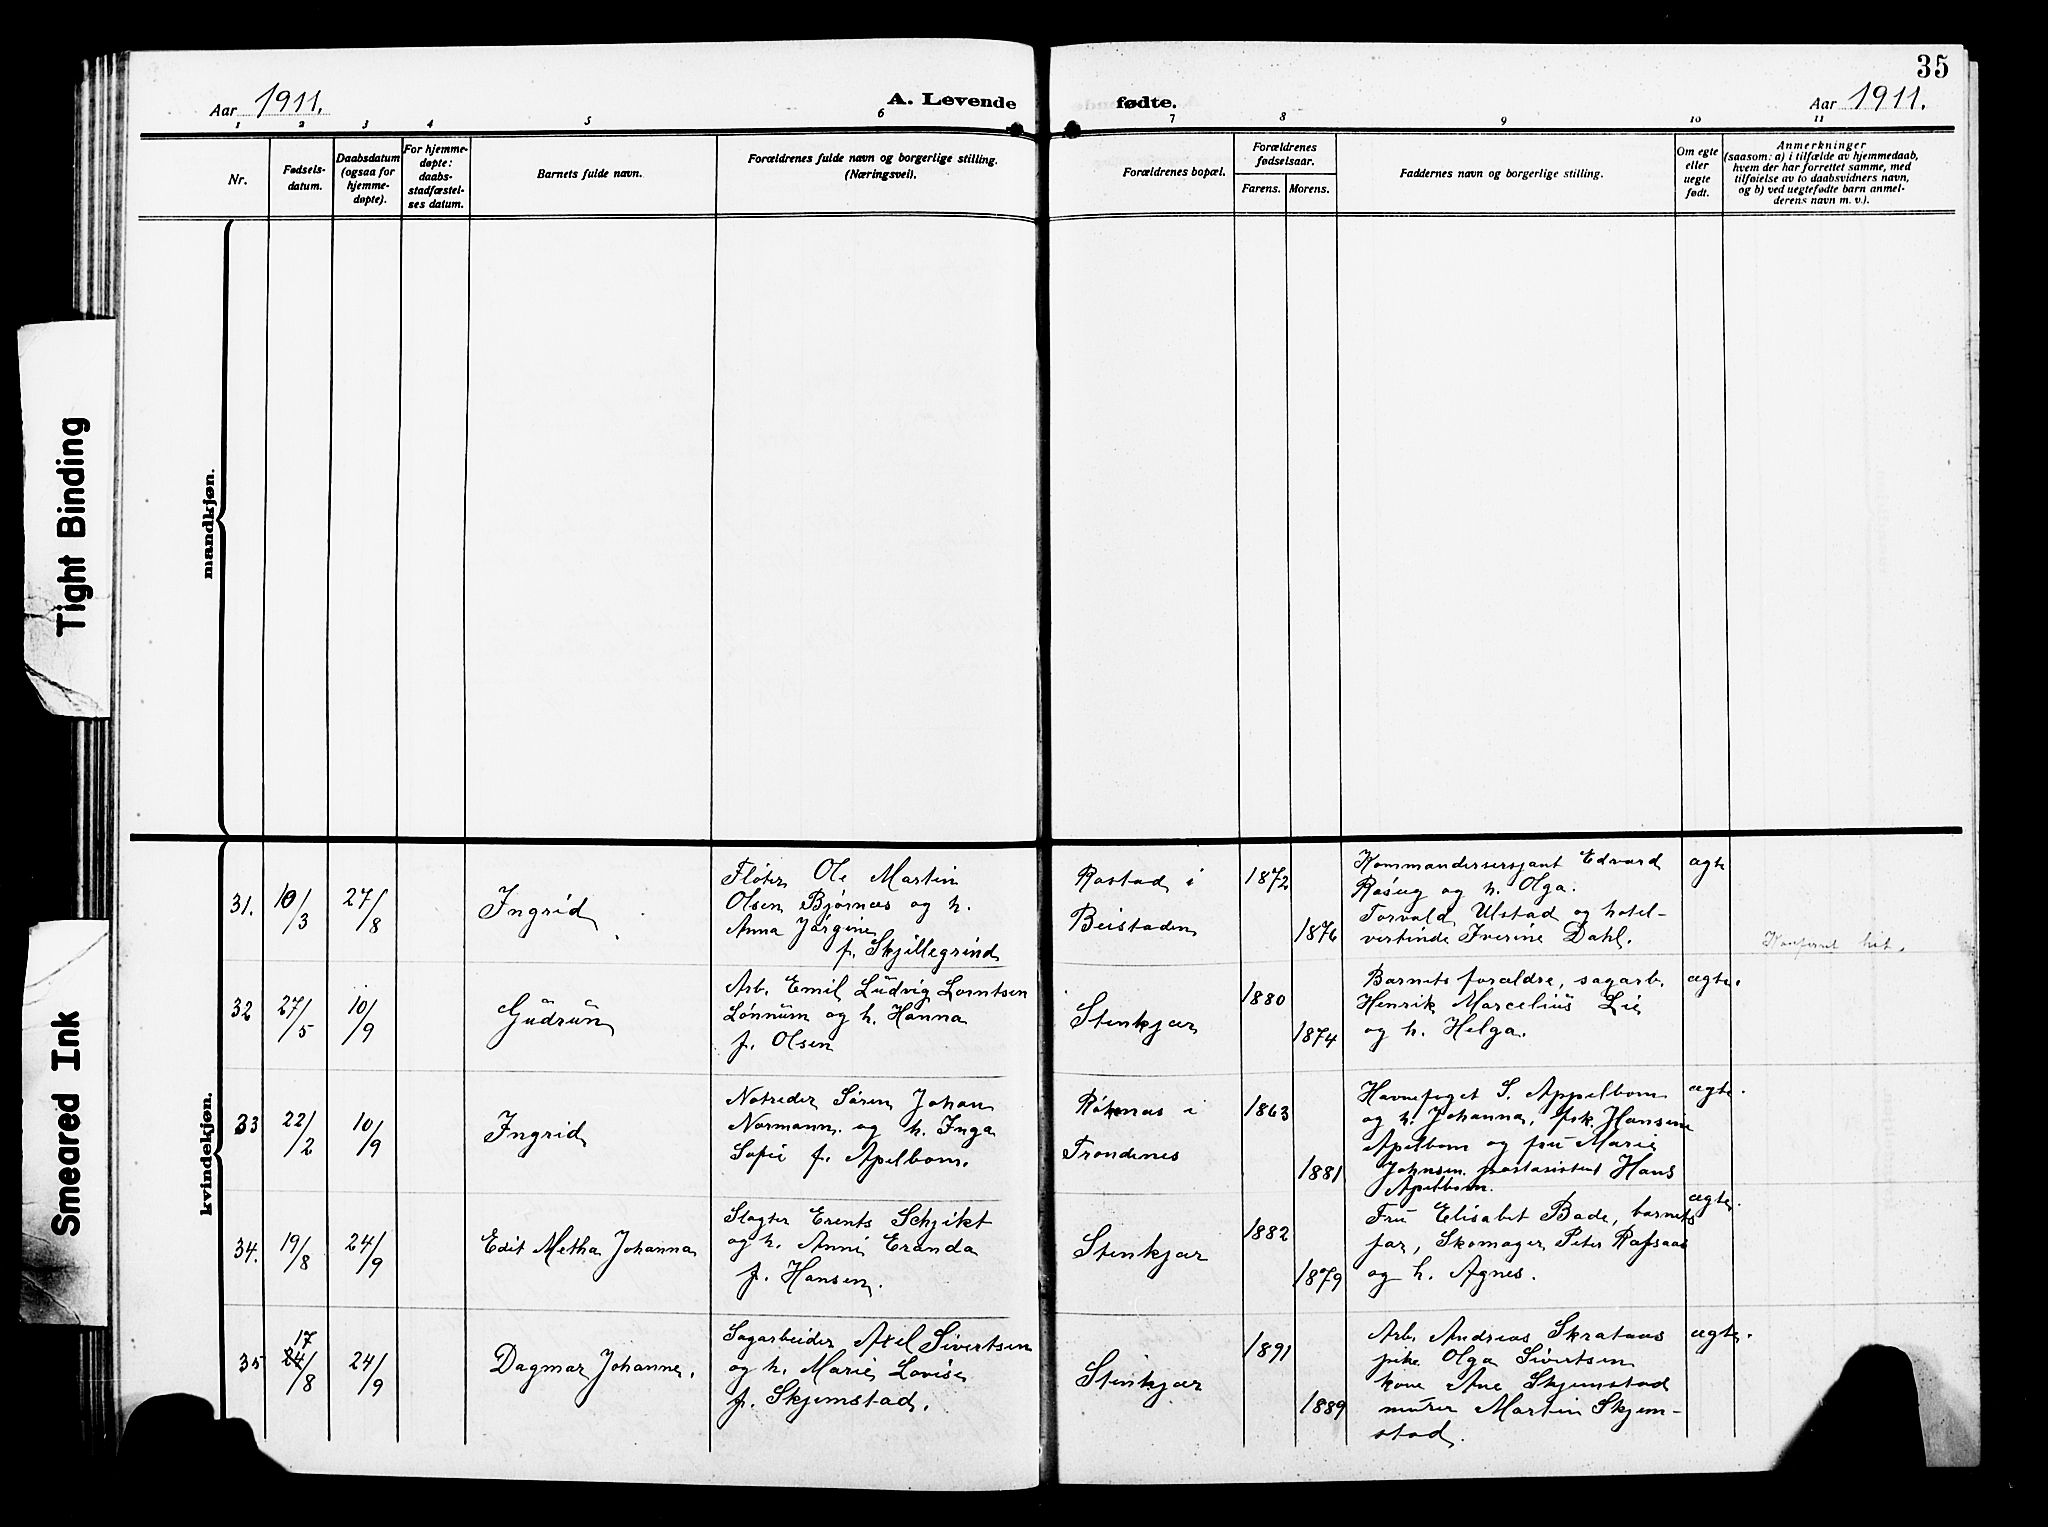 35
Aar 1911.
A. Levende fødte.
Aar 1911.
1 2 3 4 5 6 7 8 9 10 11
Nr.
Fødsels-
datum.
Daabsdatum
(ogsaa for
hjemme-
døpte).
For hjemme-
døpte:
daabs-
stadfæstel-
ses datum.
Barnets fulde navn.
Forældrenes fulde navn og borgerlige stilling.
(Næringsvei).
Forældrenes bopæl.
Forældrenes
fødselsaar.
Farens. Morens.
Faddernes navn og borgerlige stilling.
Om egte
eller
uegte
født.
Anmerkninger
(saasom: a) i tilfælde av hjemmedaab,
hvem der har forrettet samme, med
tilføielse av to daabsvidners navn,
og b) ved uegtefødte barn anmel-
derens navn m. v.).
mandkjøn.
kvindekjøn.
Tight Binding
Smeared Ink
31.
10/3
27/8
Ingrid
Fløter Ole Martin
Olsen Bjørnæs og h.
Anna Jørgine
f. Skjillegrind
Rostad i
Beistaden
1872
1876
Kommandersersjant Edvard
Røsig og h. Olga.
Torvald Ulstad og hotel-
vertinde Iverine Dahl.
ægte
Konfirmert hit.
32
27/5
10/9
Gudrun
Arb. Emil Ludvig Lorntsen
Lønnum og h. Hanna
f. Olsen
Stenkjær
1880
1874
Barnets forældre, sagarb.
Henrik Marcelius Lie
og h. Helga.
ægte.
33
22/2
10/9
Ingrid
Notreder Sören Johan
Normann og h. Inga
Sofie f. Apelbom.
i
Trondenes
1863
1881
Havnefoget S. Appelbom
og h. Johanna, frk. Hansine
Apelbom og fru Marie
Johnsen, postasistent Hans
Apelbom.
ægte.
34.
19/8
24/9
Edit Metha Johanna
Slagter Erents Schjikt
og h. Anne Eranda
f. Hansen.
Stenkjær
1882
1879
Fru Elisabet Bade, barnets
far, Skomager Peter Rafsaas
og h. Agnes.
ægte.
35
17
24/8
24/9
Dagmar Johanne.
Sagarbeider Axel Sivertsen
og h. Marie Lovise
f. Skjemstad.
Stenkjær
1891
1889
Arb. Andreas Skrataas
pike Olga Sivertsen
kone Ane Skjemstad
murer Martin Skjem-
stad.
ægte.